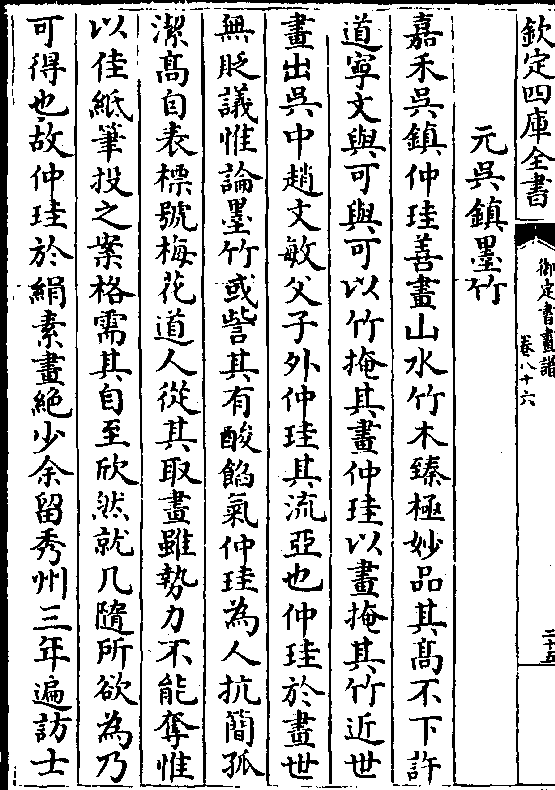 欽定四庫全書
御定書畫譜
卷八十六
二十五
元吳鎮墨竹
嘉禾吳鎮仲珪善畫山水竹木臻極妙品其高不下許
道寧文與可與可以竹掩其畫仲珪以畫掩其竹近世
畫出吳中趙文敏父子外仲珪其流亞也仲珪於畫世
無貶議惟論墨竹或訾其有酸餡氣仲珪為人抗簡孤
潔高自表標號梅花道人從其取畫雖勢力不能奪惟
以佳紙筆投之案格需其自至欣然就几隨所欲為乃
可得也故仲珪於絹素畫絕少余留秀州三年遍訪士